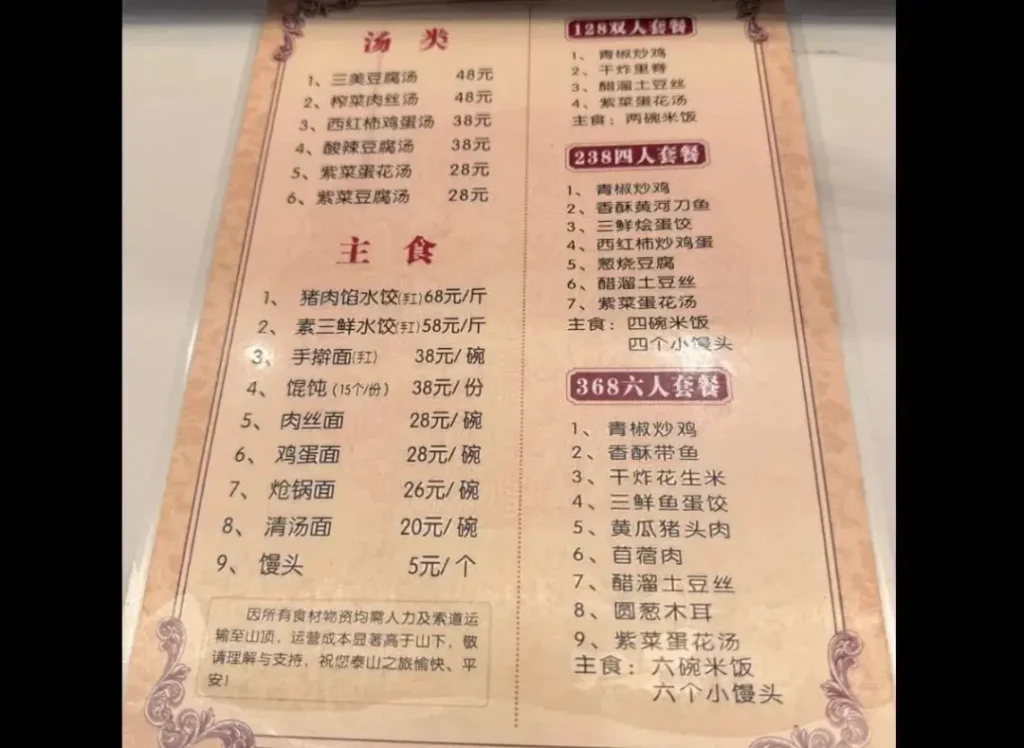 汤 类
1、三美豆腐汤 48元
2、榨菜肉丝汤 48元
3、西红柿鸡蛋汤 38元
4、酸辣豆腐汤 38元
5、紫菜蛋花汤 28元
6、紫菜豆腐汤 28元
主 食
1、 猪肉馅水饺(手工)68元/斤
2、 素三鲜水饺(手工)58元/斤
3、 手擀面(手工) 38元/碗
4、 馄饨(15个/份) 38元/份
5、 肉丝面 28元/碗
6、 鸡蛋面 28元/碗
7、 炝锅面 26元/碗
8、 清汤面 20元/碗
9、 馒头 5元/个
因所有食材物资均需人力及索道运
输至山顶，运营成本显著高于山下，敬
请理解与支持，祝您泰山之旅愉快、平
安！
128双人套餐
1、 青椒炒鸡
2、 干炸里脊
3、 醋溜土豆丝
4、 紫菜蛋花汤
主食：两碗米饭
238四人套餐
1、 青椒炒鸡
2、 香酥黄河刀鱼
3、 三鲜烩蛋饺
4、 西红柿炒鸡蛋
5、 葱烧豆腐
6、 醋溜土豆丝
7、 紫菜蛋花汤
主食：四碗米饭
四个小馒头
368六人套餐
1、 青椒炒鸡
2、 香酥带鱼
3、 干炸花生米
4、 三鲜鱼蛋饺
5、 黄瓜猪头肉
6、 苜蓿肉
7、 醋溜土豆丝
8、 圆葱木耳
9、 紫菜蛋花汤
主食：六碗米饭
六个小馒头